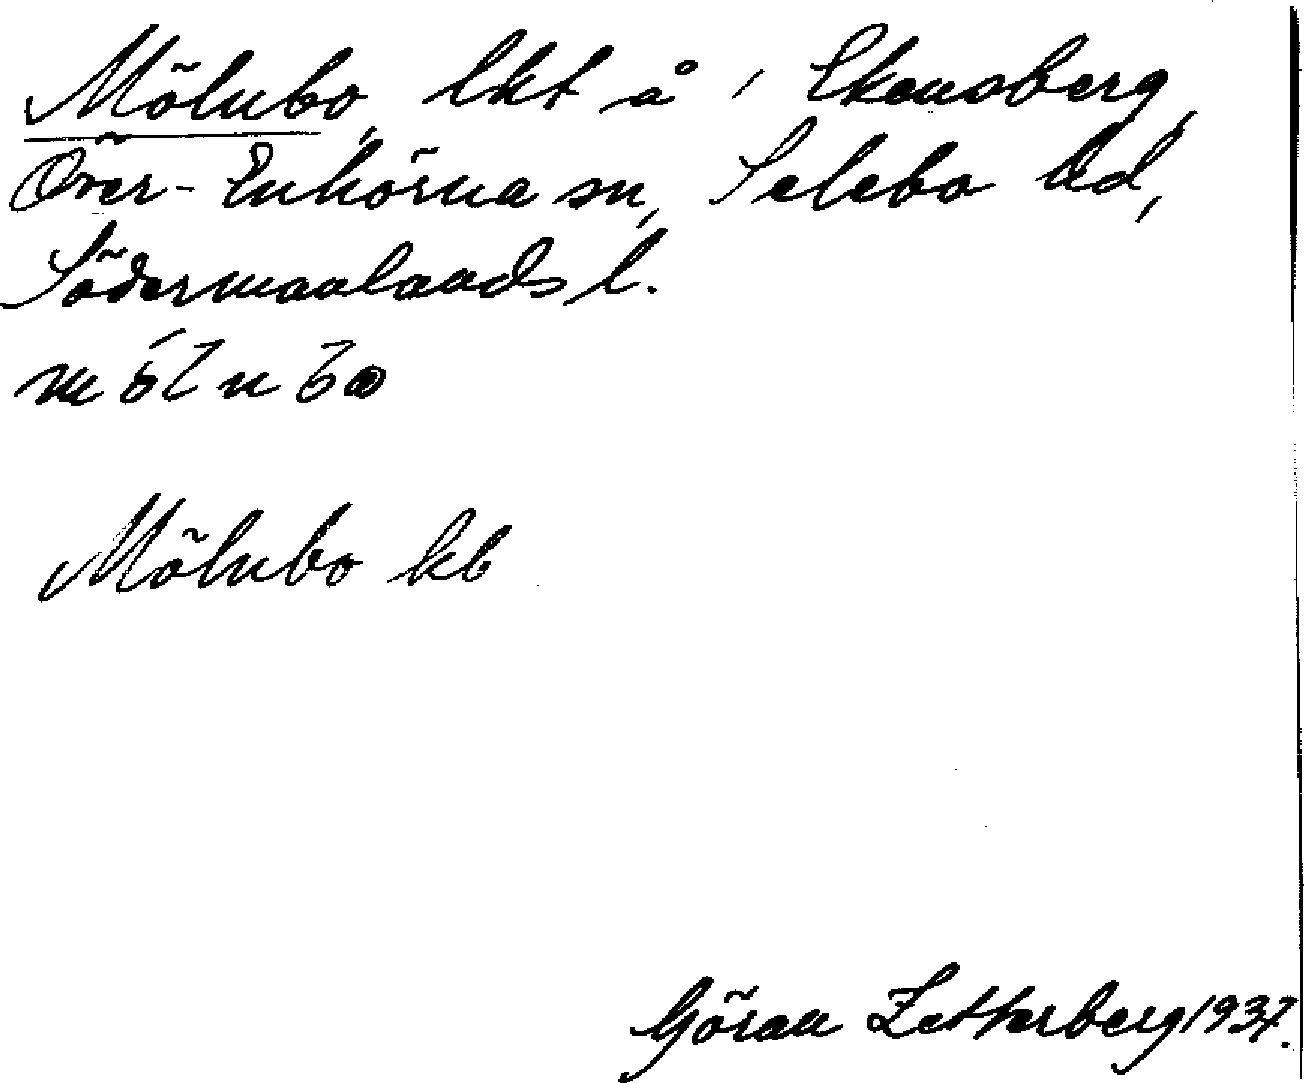 Mölnbo, lkt å i Ekensberg,
Över-Enhörna sn, Selebo hd,
Södermanlands l.

Mölnbo kb
Göran Zetterberg 1937.